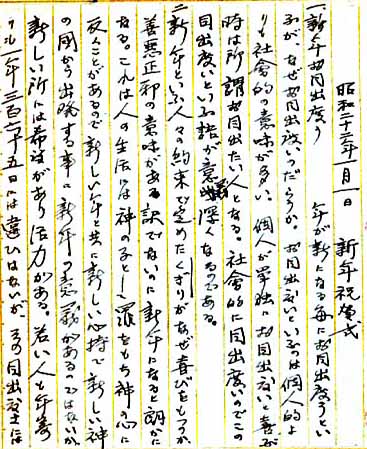 昭和二十二年一月一日　新年祝賀式
一、新年お目出度う　年が新になる毎にお目出度うとい
ふが、なぜお目出度いつだらうか。お目出度いといふのは個人的よ
りも社会的の意味が多い。個人が単独にお目出度い と喜ぶ
時は所謂お目出たい人となる。社会的に目出度いのでこの
目出度いといふ語が意義深くなるのである。
二、新年といふ人々の約束で定めたくぎりがなぜ喜びをもつか
善悪正邪の意味がある訳でないのに新年になると朗かに
なる。これは人の生活には神の子として罪をもち神の心に
反くことがあるので新しい年と共に新しい心持で新しい神
の国から出発する事に新年の意義があるのではないか。
新しい所には希望があり活力がある。若い人と年寄
一年三百六十五日には違ひはないが、その目出度さには